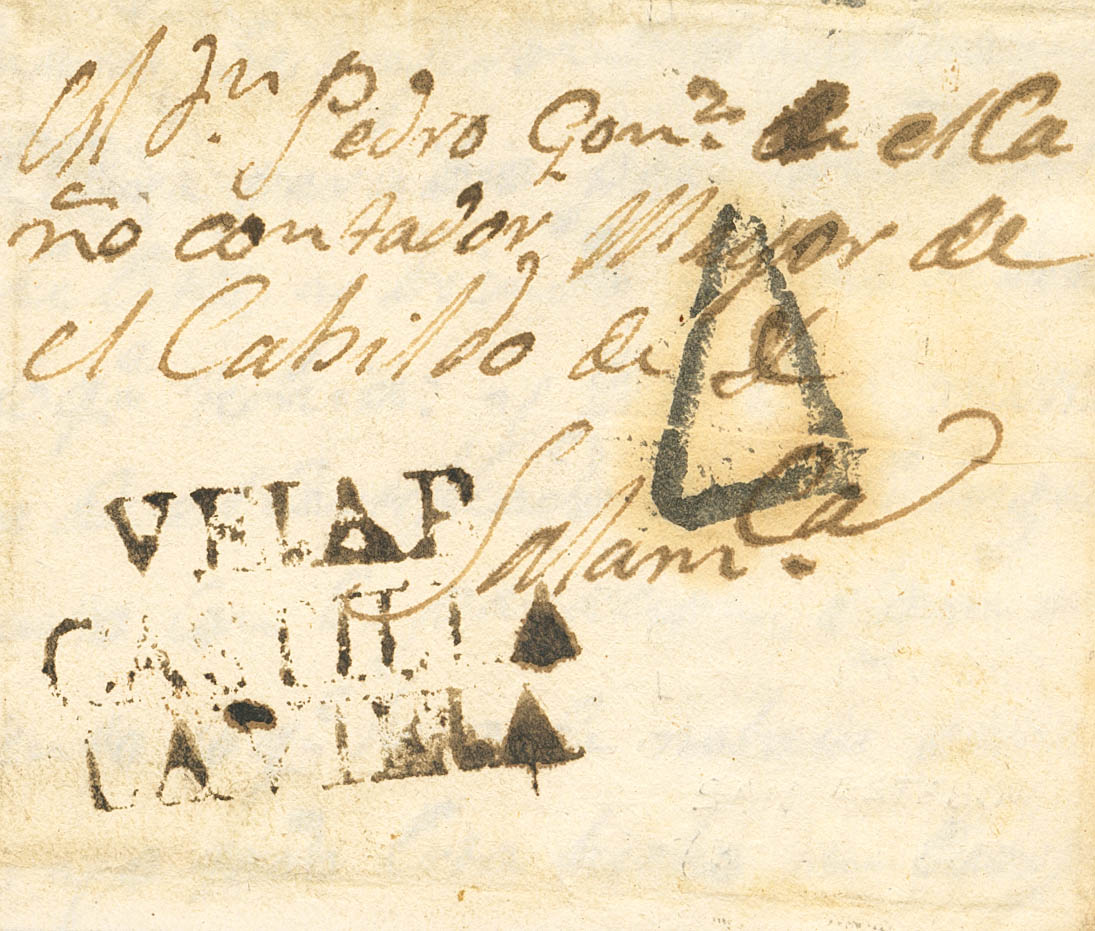 Al Sn. Pedro Gonz. de el Ca
ño contador Mayor de
el Cabildo de
Salam.ca
VEJAR
CASTILLA
LA VIEJA